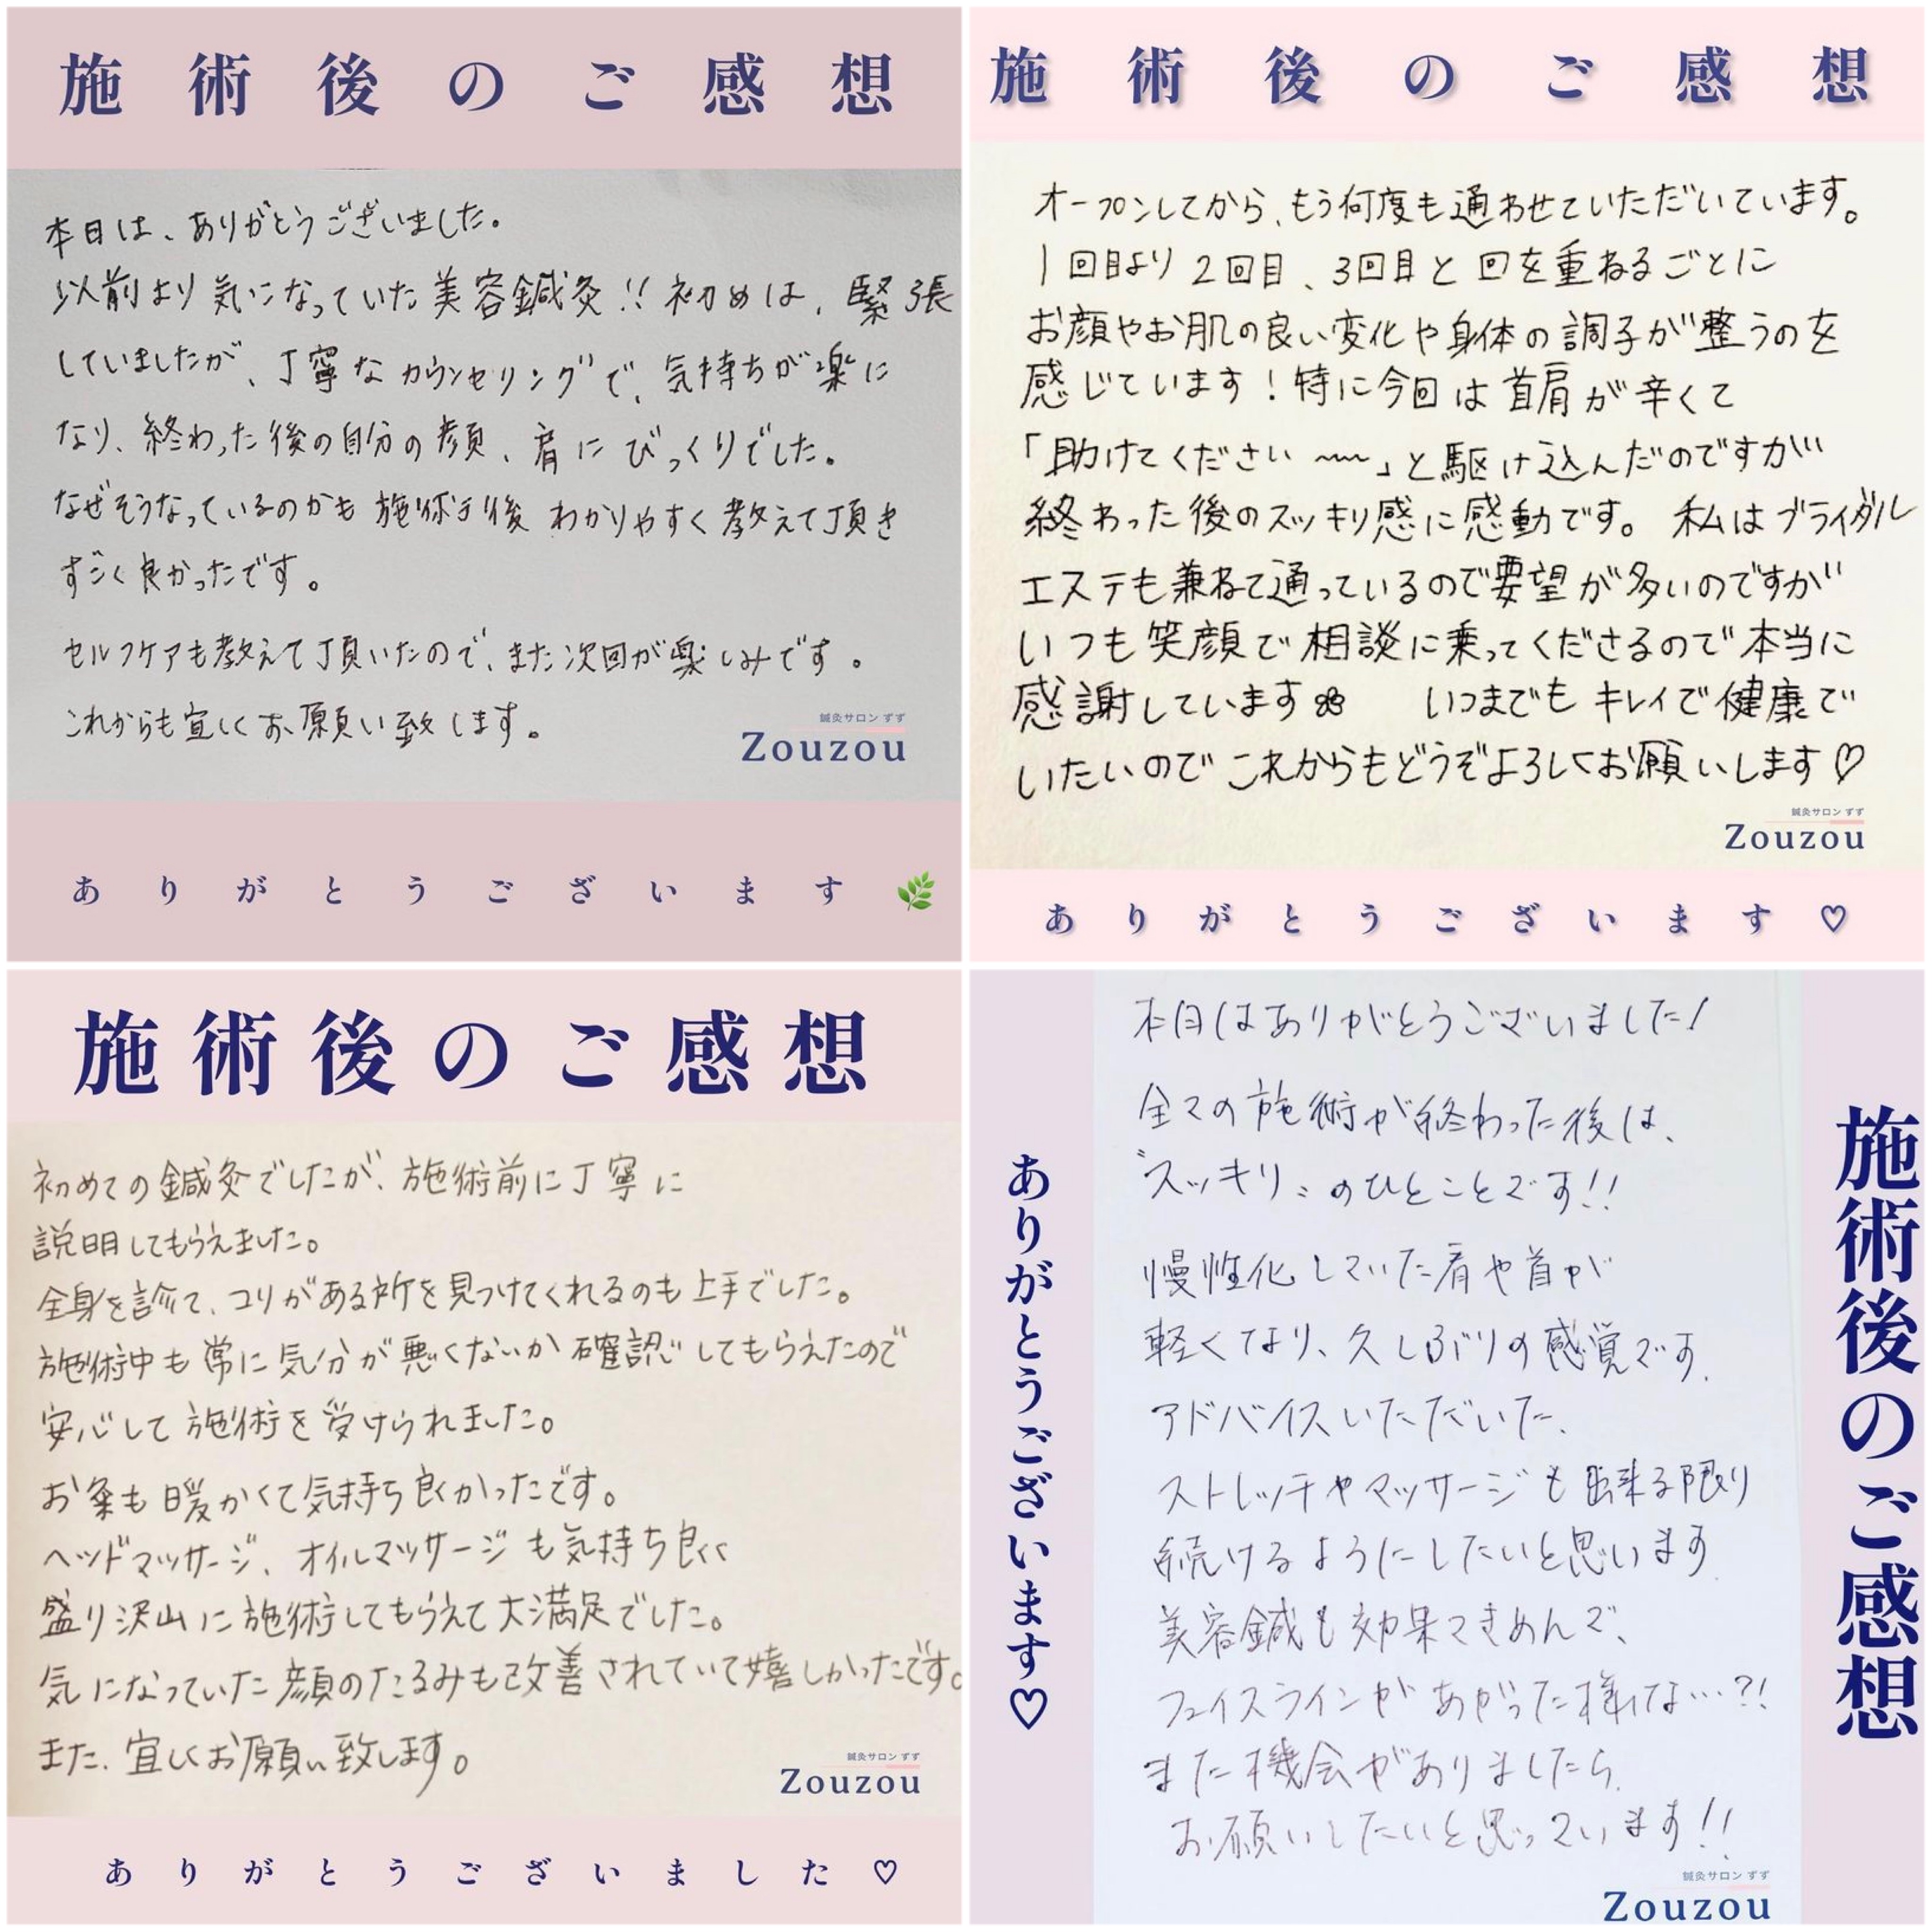 施術後のご感想
本日は、ありがとうございました。
以前より気になっていた美容鍼灸!! 初めは、緊張
していましたが、丁寧なカウンセリングで、気持ちが楽に
なり、終わった後の自分の顔、肩にびっくりでした。
なぜそうなっているのかも施術後わかりやすく教えて頂き
すごく良かったです。
セルフケアも教えて頂いたので、また次回が楽しみです。
これからも宜しくお願い致します。
鍼灸サロン ずず
Zouzou
ありがとうございます🌿
施術後のご感想
オープンしてから、もう何度も通わせていただいています。
1回目より2回目、3回目と回を重ねるごとに
お顔やお肌の良い変化や身体の調子が整うのを
感じています!特に今回は首肩が辛くて
「助けてください〜〜」と駆け込んだのですが
終わった後のスッキリ感に感動です。私はブライダル
エステも兼ねて通っているので要望が多いのですが
いつも笑顔で相談に乗ってくださるので本当に
感謝しています いつまでもキレイで健康で
いたいのでこれからもどうぞよろしくお願いします♡
鍼灸サロン ずず
Zouzou
ありがとうございます♡
施術後のご感想
初めての鍼灸でしたが、施術前に丁寧に
説明してもらえました。
全身を診て、コリがある所を見つけてくれるのも上手でした。
施術中も常に気分が悪くないか確認してもらえたので
安心して施術を受けられました。
お灸も暖かくて気持ち良かったです。
ヘッドマッサージ、オイルマッサージも気持ち良く
盛り沢山に施術してもらえて大満足でした。
気になっていた顔のたるみも改善されていて嬉しかったです。
また、宜しくお願い致します。
鍼灸サロン ずず
Zouzou
ありがとうございました♡
施術後のご感想
本日はありがとうございました!
全ての施術が終わった後は、
"スッキリ"のひとことです!!
慢性化していた肩や首が
軽くなり、久しぶりの感覚です。
アドバイスいただいた、
ストレッチやマッサージも出来る限り
続けるようにしたいと思います。
美容鍼も効果てきめんで、
フェイスラインがあがった様な…?!
また機会がありましたら、
お願いしたいと思っています!!
鍼灸サロン ずず
Zouzou
ありがとうございます♡